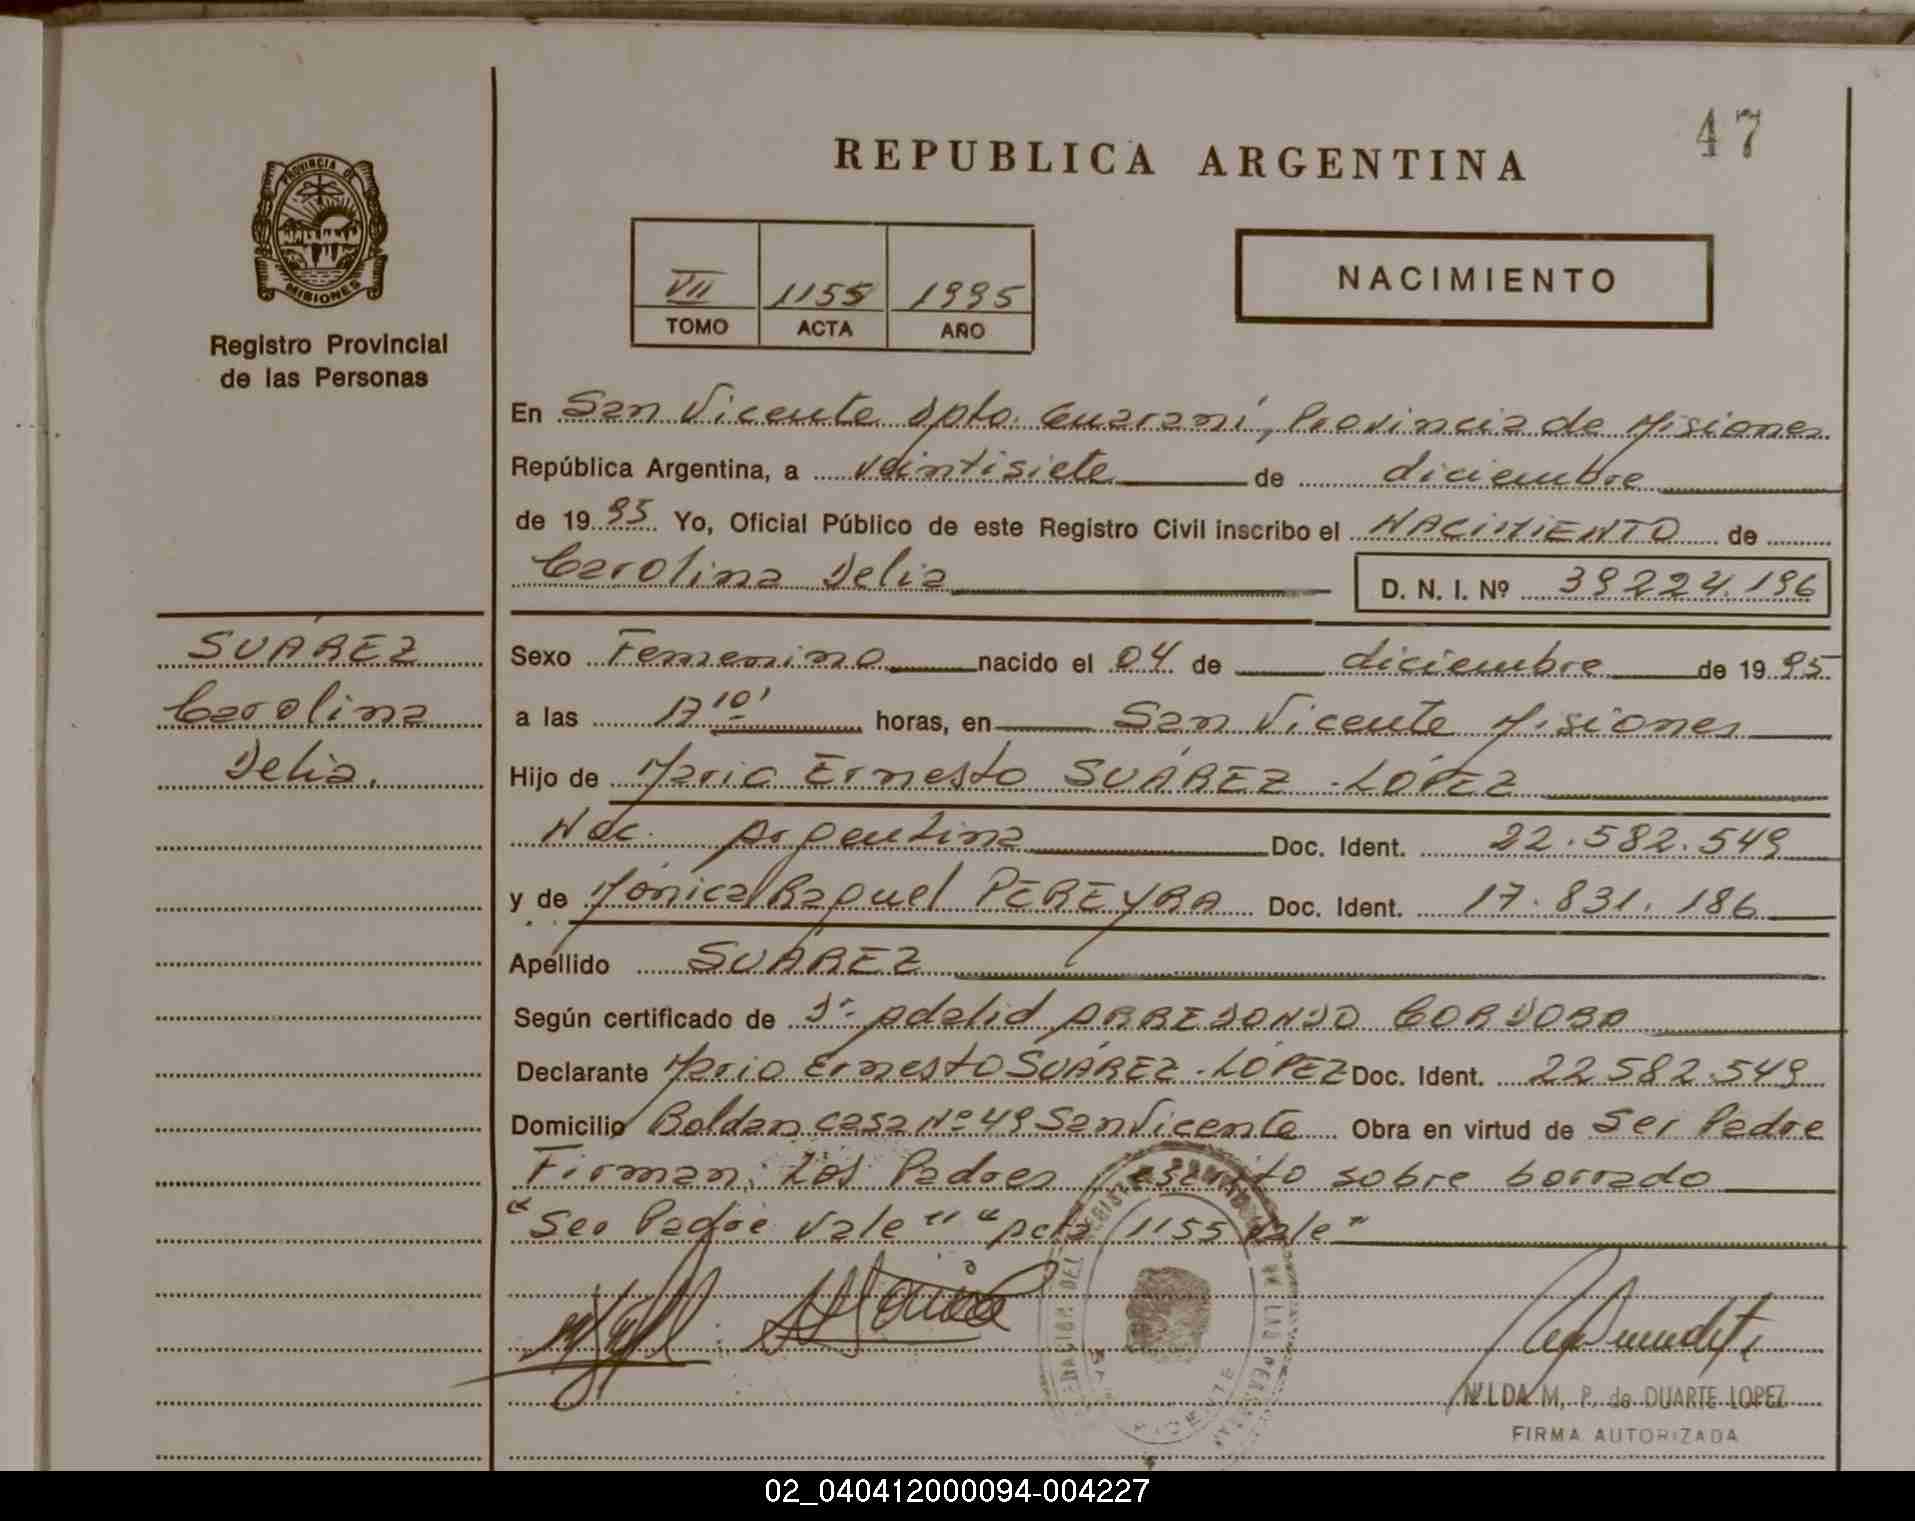 47
REPUBLICA ARGENTINA
PROVINCIA DE
MISIONES
Registro Provincial
de las Personas
VII 1155 1995
TOMO ACTA AÑO
NACIMIENTO
En San Vicente Dpto. Guaraní, Provincia de Misiones
República Argentina, a veintisiete de diciembre
de 1995 Yo, Oficial Público de este Registro Civil inscribo el NACIMIENTO de
Carolina Delia D. N. I. Nº 39224.196
SUÁREZ
Carolina
Delia.
Sexo Femenino nacido el 04 de diciembre de 1995
a las 17 10' horas, en San Vicente Misiones
Hijo de Mario Ernesto SUÁREZ - LÓPEZ
Nac. Argentina Doc. Ident. 22.582.549
y de Mónica Raquel PEREYRA Doc. Ident. 17.831.186
Apellido SUÁREZ
Según certificado de Dr. Adalid ARREDONDO CORDOBA
Declarante Mario Ernesto SUÁREZ - LÓPEZ Doc. Ident. 22582.549
Domicilio Roldan casa Nº 49 San Vicente Obra en virtud de Ser Padre
Firman: Los Padres escrito sobre borrado
"Ser Padre Vale" "Acta 1155 vale"
Mónica
NILDA M. P. de DUARTE LOPEZ
FIRMA AUTORIZADA
02_040412000094-004227